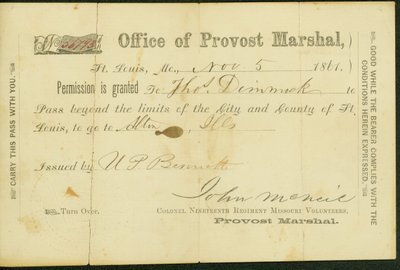 No 36795
Office of Provost Marshal,
St. Louis, Mo., Nov 5 1861.
Permission is granted To Thos. Dimmock to
Pass beyond the limits of the City and County of St.
Louis, to go to Alton, Ills
Issued by U P Bennett
John McNeil
Turn Over.
COLONEL NINETEENTH REGIMENT MISSOURI VOLUNTEERS,
Provost Marshal.
CARRY THIS PASS WITH YOU.
GOOD WHILE THE BEARER COMPLIES WITH THE
CONDITIONS HEREIN EXPRESSED.